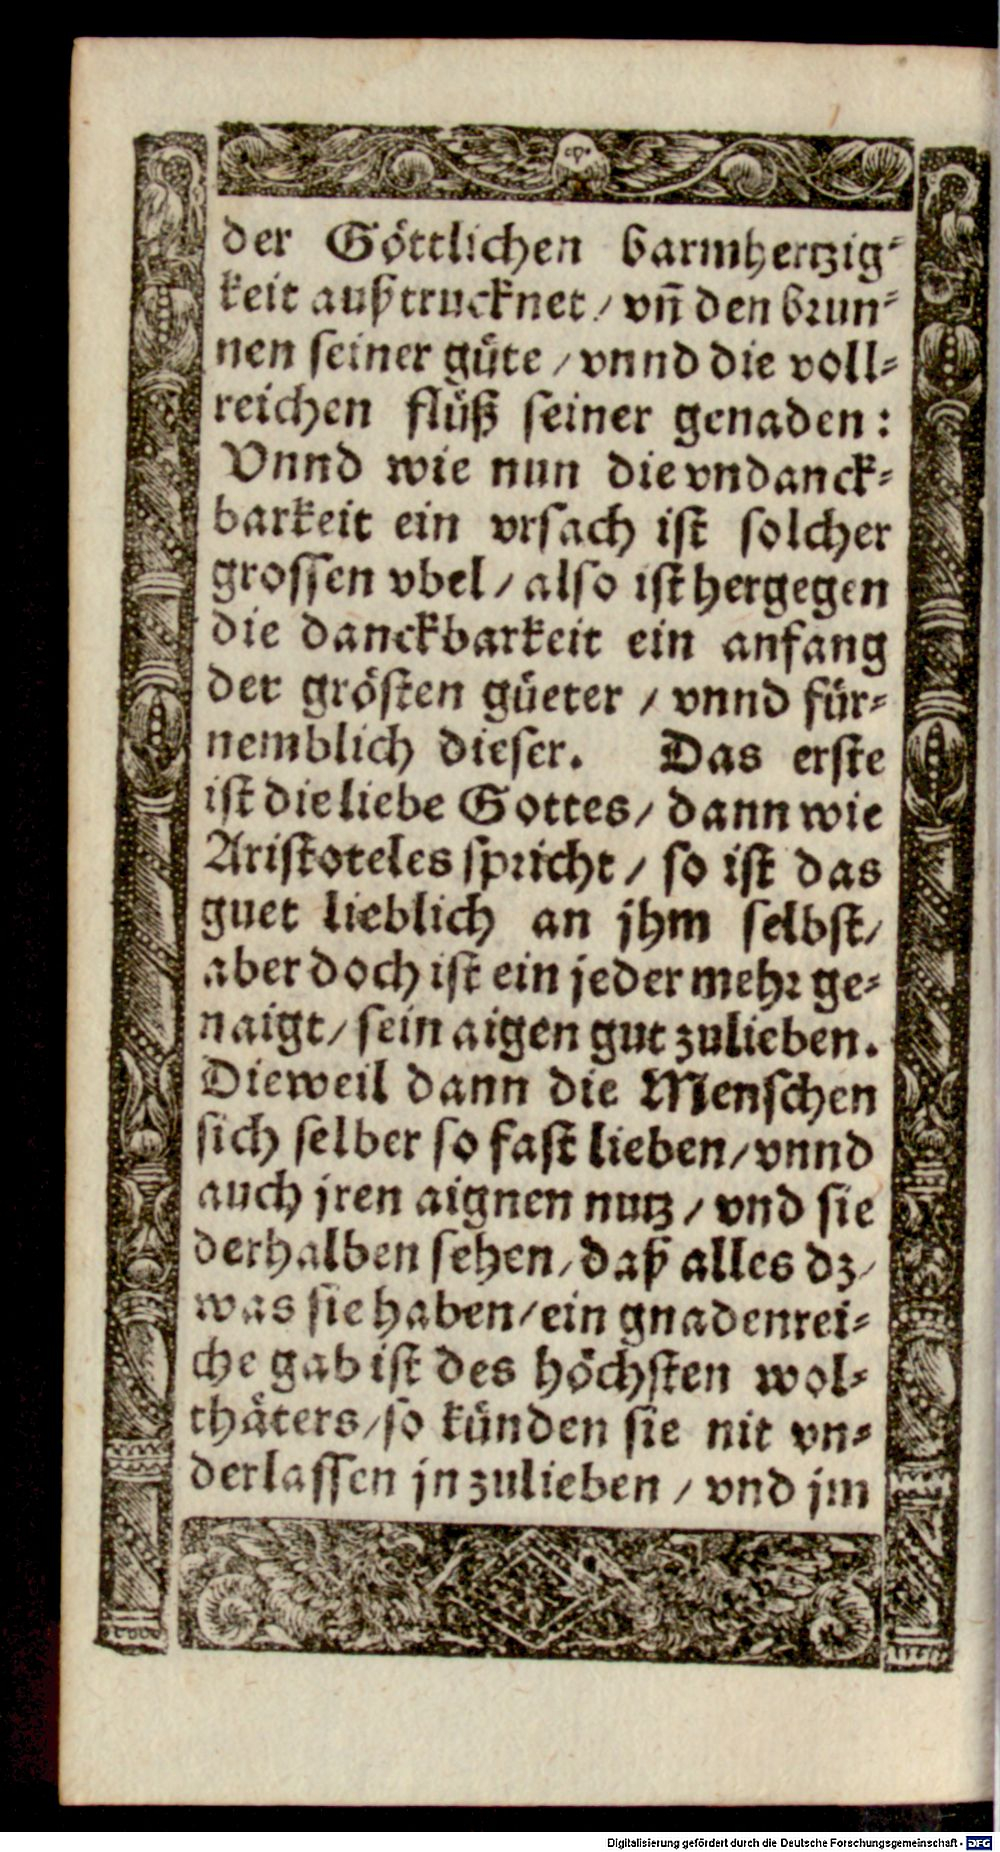 der Göttlichen barmhertzig-
keit außtrucknet / vñ den brun-
nen seiner güte / vnnd die voll-
reichen flüß seiner genaden :
Vnnd wie nun die vndanck-
barkeit ein vrsach ist solcher
grossen vbel / also ist hergegen
die danckbarkeit ein anfang
der grösten güeter / vnnd für-
nemblich dieser. Das erste
ist die liebe Gottes / dann wie
Aristoteles spricht / so ist das
guet lieblich an jhm selbst /
aber doch ist ein jeder mehr ge-
naigt / sein aigen gut zulieben.
Dieweil dann die Menschen
sich selber so fast lieben / vnnd
auch jren aignen nutz / vnd sie
derhalben sehen / daß alles dz /
was sie haben / ein gnadenrei-
che gab ist des höchsten wol-
thäters / so künden sie nit vn-
derlassen jn zulieben / vnd jm
Digitalisierung gefördert durch die Deutsche Forschungsgemeinschaft - DFG